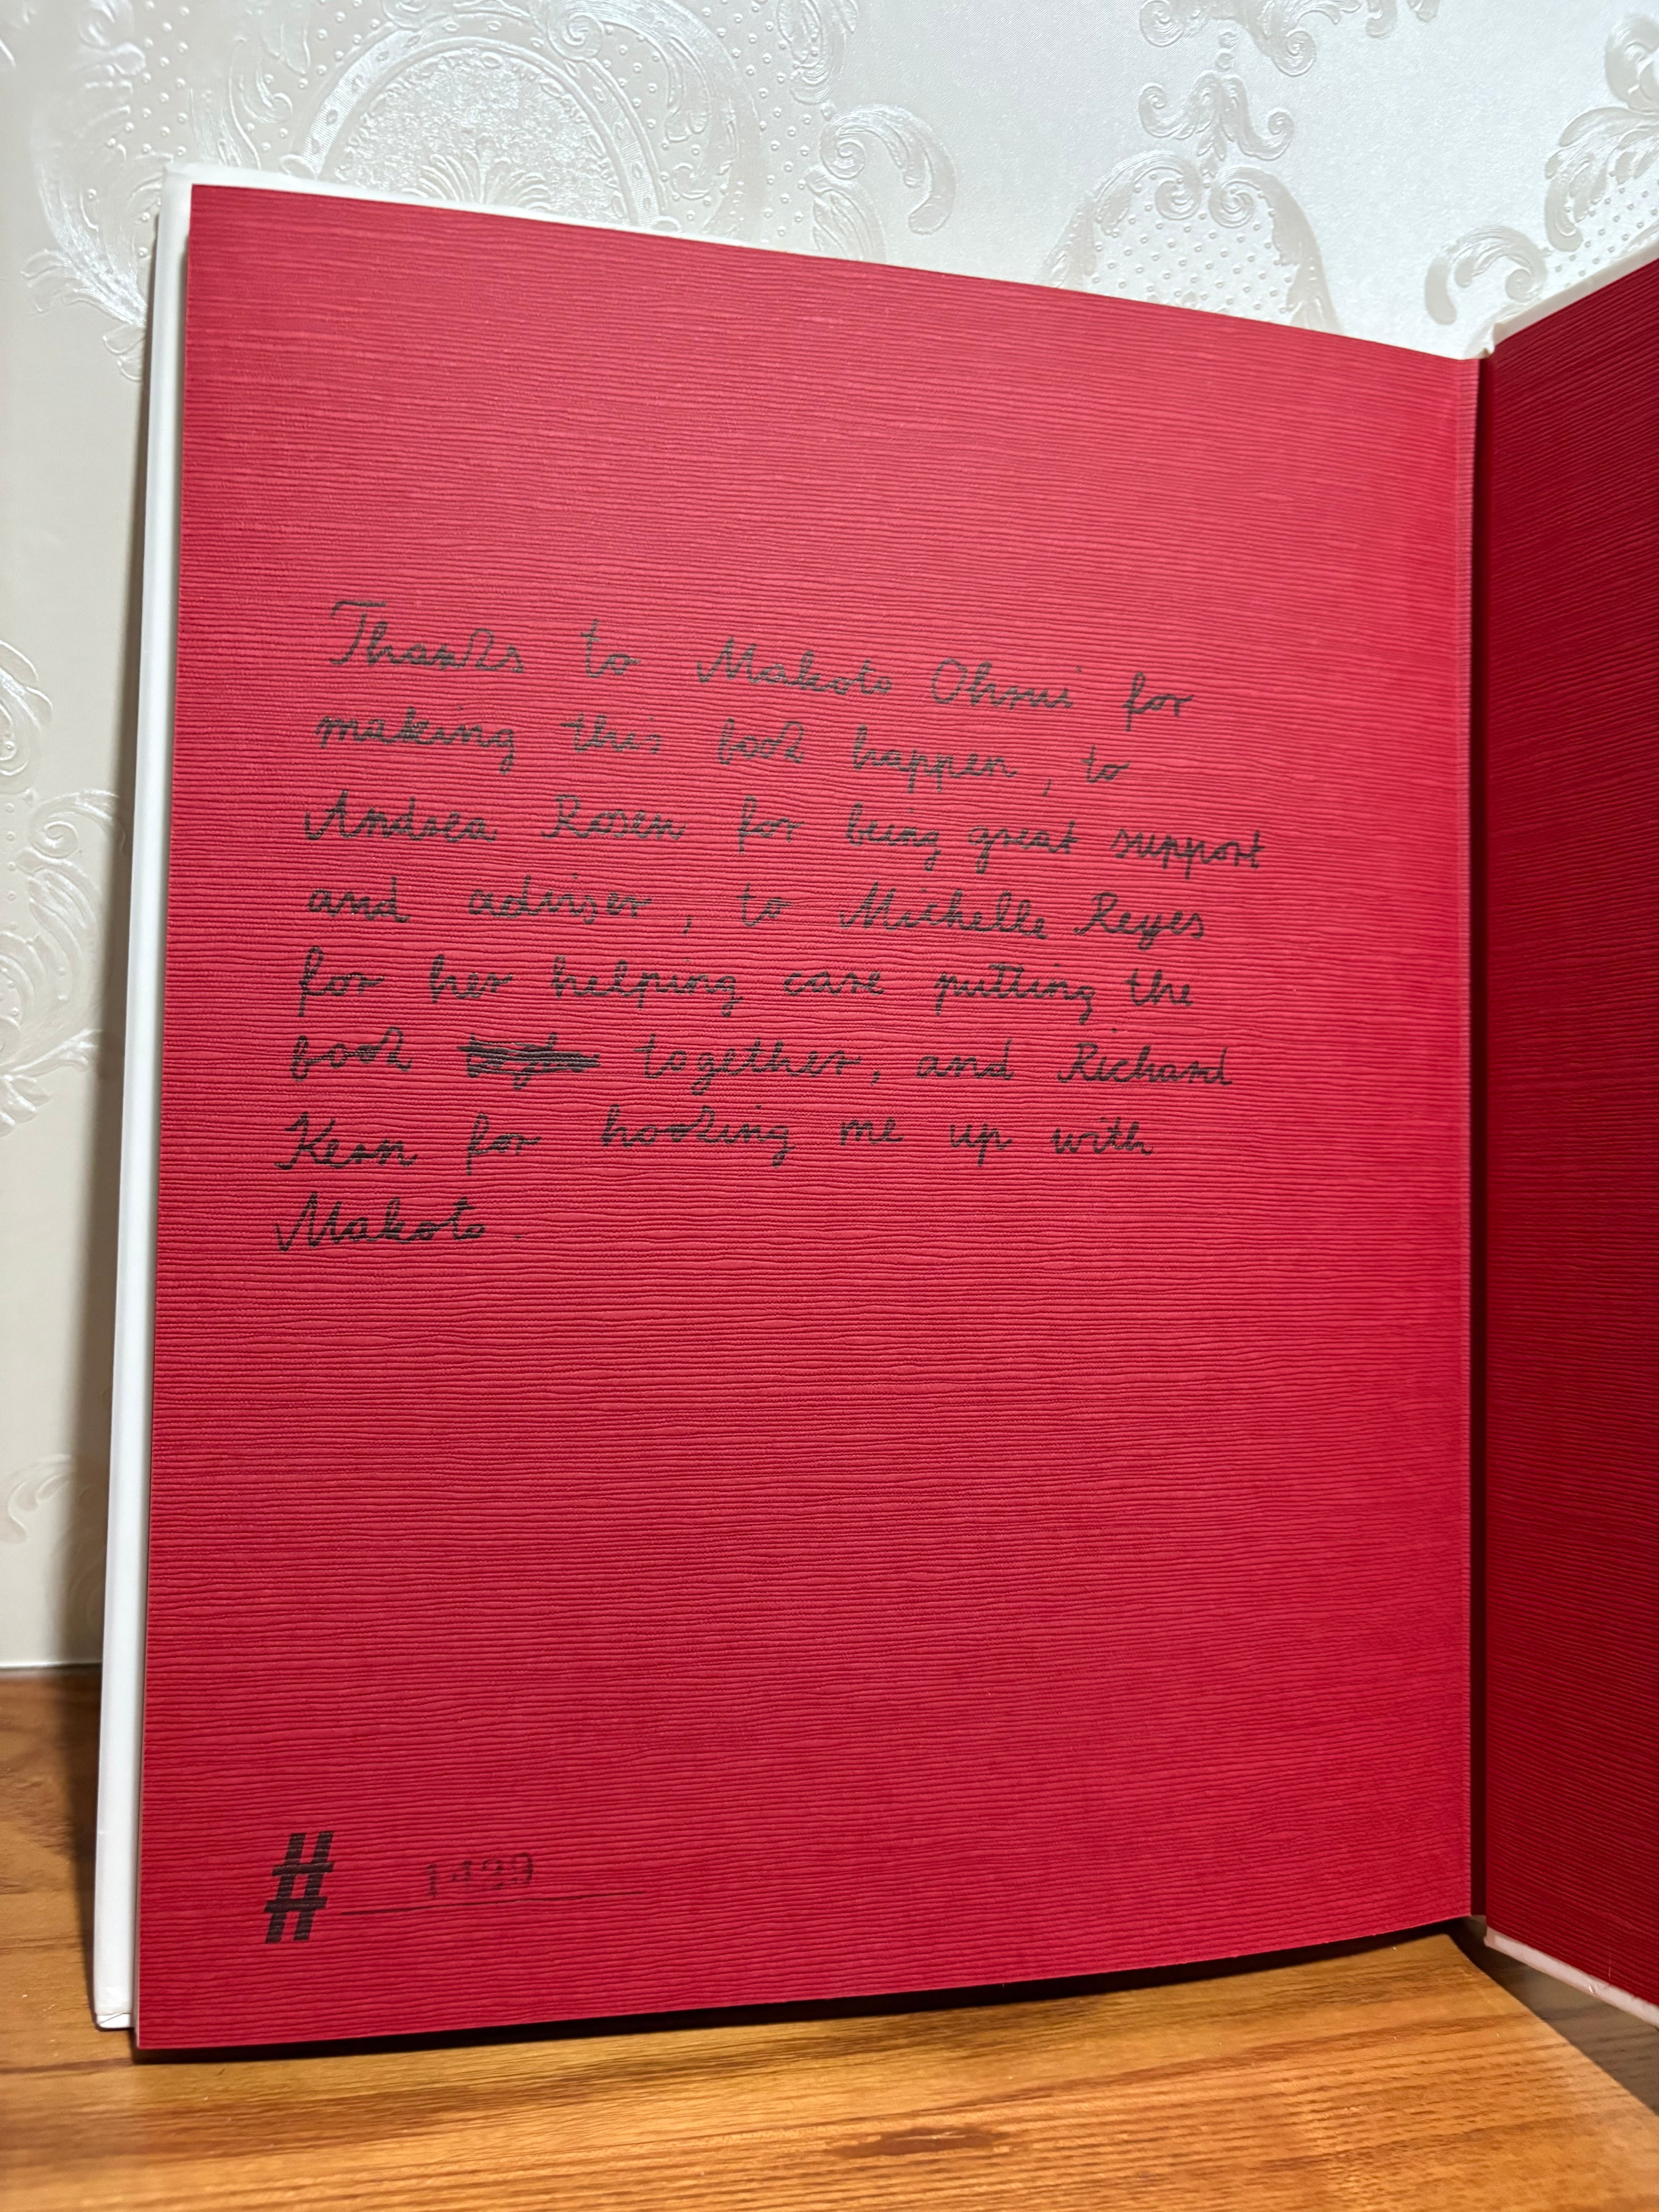 Thanks to Makoto Ohrui for
making this book happen, to
Andrea Rosen for being great support
and adviser, to Michelle Reyes
for her helping care putting the
book together, and Richard
Kern for hooking me up with
Makoto.
#